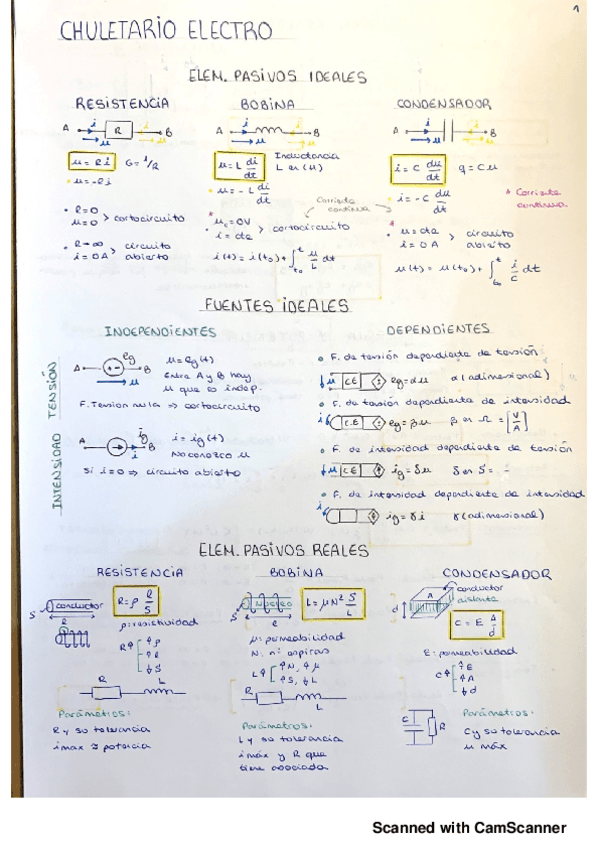 1
CHULETARIO ELECTRO
ELEM. PASIVOS IDEALES
RESISTENCIA
A i R i B
u u
u = R i G = 1/R
u = -R i
• R=0
u=0 > cortocircuito
• R→∞
i=0A > circuito abierto
BOBINA
A i i B
u u
u = L di/dt Inductancia
L en (H)
• u = - L di/dt
Corriente continua
* u = 0V
i = cte > cortocircuito
i(t) = i(t₀) + ∫ u/L dt
CONDENSADOR
A i i B
u u
i = C du/dt q = C u
• i = -C du/dt
* Corriente continua
* u = cte
i = 0 A > circuito abierto
u(t) = u(t₀) + ∫ i/C dt
FUENTES IDEALES
INDEPENDIENTES
TENSIÓN
A eg B
u
u = eg(t)
Entre A y B hay
u que es indep.
F. Tension nula ⇒ cortocircuito
INTENSIDAD
A ig B
u
i = ig(t)
No conozco u
Si i=0 ⇒ circuito abierto
DEPENDIENTES
o F. de tensión dependiente de tensión
u C.E eg = αu α (adimensional)
o F. de tensión dependiente de intensidad
i C.E eg = βu β en Ω = [V/A]
o F. de intensidad dependiente de tensión
u C.E ig = δu δ en S =
o F. de intensidad dependiente de intensidad
i ig = γ i γ (adimensional)
ELEM. PASIVOS REALES
RESISTENCIA
S conductor
l
R = ρ l/S
ρ: resistividad
R↑ ↑ρ
↑l
↓S
R L
Parámetros:
R y su tolerancia
i max ≈ potencia
BOBINA
S Núcleo
l
L = μN² S/l
μ: permeabilidad
N: nº espiras
L↑ ↑N, ↑μ
↑S, ↓L
R L
Parámetros:
L y su tolerancia
i máx y R que
tiene asociada
CONDENSADOR
A
d
conductor
aislante
C = E A/d
E: permeabilidad
C↑ ↑E
↑A
↓d
C R
Parámetros:
C y su tolerancia
u máx
Scanned with CamScanner